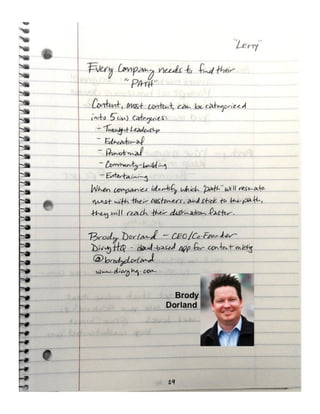 "Letty"
Every Company needs to find their
"PATH"
Content, most content, can be categorized
into 5 (ish) categories:
- Thought Leadership
- Educational
- Promotional
- Community-building
- Entertaining
When companies identify which 'path' will resonate
most with their customers, and stick to the path,
they will reach their destination faster.
Brody Dorland - CEO/Co-Founder
DivvyHQ - cloud-based app for content mktg
@brodydorland
www.divvyhq.com
Brody
Dorland
29